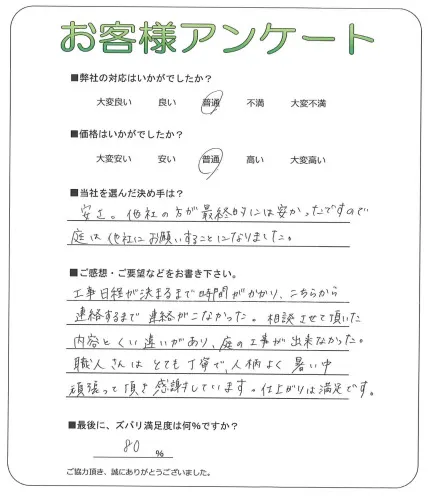 お客様アンケート
■弊社の対応はいかがでしたか？
大変良い 良い 普通 不満 大変不満
■価格はいかがでしたか？
大変安い 安い 普通 高い 大変高い
■当社を選んだ決め手は？
安さ。他社の方が最終的には安かったですので
庭は他社にお願いすることになりました。
■ご感想・ご要望などをお書き下さい。
工事日経が決まるまで時間がかかり、こちらから
連絡するまで連絡がこなかった。相談させて頂いた
内容とくい違いがあり、庭の工事が出来なかった。
職人さんはとても丁寧で、人柄よく暑い中
頑張って頂き感謝しています。仕上がりは満足です。
■最後に、ズバリ満足度は何％ですか？
80 %
ご協力頂き、誠にありがとうございました。